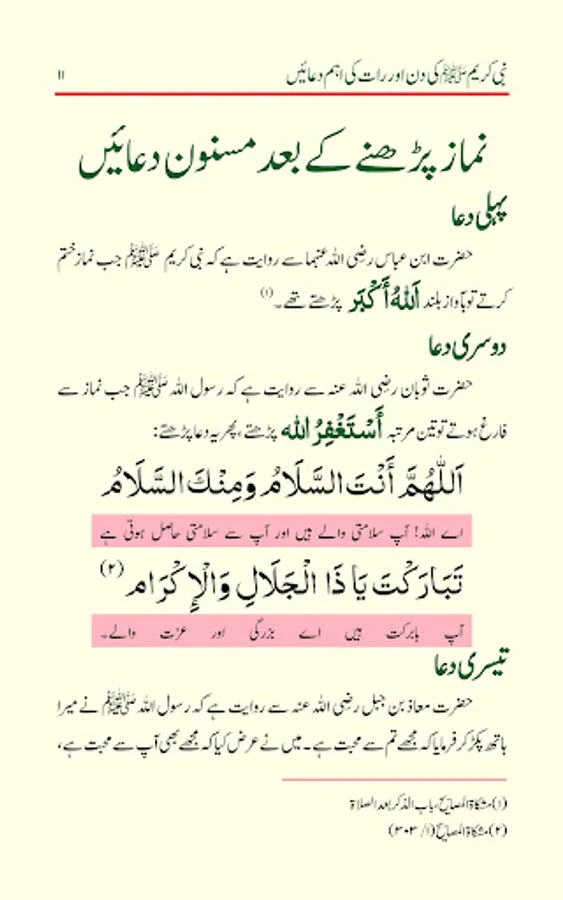 نبی کریم ﷺ کی دن اور رات کی اہم دعائیں ۱۱
نماز پڑھنے کے بعد مسنون دعائیں
پہلی دعا
حضرت ابن عباس رضی اللہ عنہما سے روایت ہے کہ نبی کریم ﷺ جب نماز ختم
کرتے تو بآواز بلند اَللهُ أَكْبَر پڑھتے تھے۔(۱)
دوسری دعا
حضرت ثوبان رضی اللہ عنہ سے روایت ہے کہ رسول اللہ ﷺ جب نماز سے
فارغ ہوتے تو تین مرتبہ أَسْتَغْفِرُ الله پڑھتے، پھر یہ دعا پڑھتے:
اَللّٰهُمَّ أَنْتَ السَّلَامُ وَمِنْكَ السَّلَامُ
اے اللہ! آپ سلامتی والے ہیں اور آپ سے سلامتی حاصل ہوتی ہے
تَبَارَكْتَ يَا ذَا الْجَلَالِ وَالْإِكْرَام (۲)
آپ بابرکت ہیں اے بزرگی اور عزت والے۔
تیسری دعا
حضرت معاذ بن جبل رضی اللہ عنہ سے روایت ہے کہ رسول اللہ ﷺ نے میرا
ہاتھ پکڑ کر فرمایا کہ مجھے تم سے محبت ہے۔ میں نے عرض کیا کہ مجھے بھی آپ سے محبت ہے،
(۱) مشکاۃ المصابیح، باب الذکر بعد الصلاۃ
(۲) مشکاۃ المصابیح (۱/ ۳۰۳)